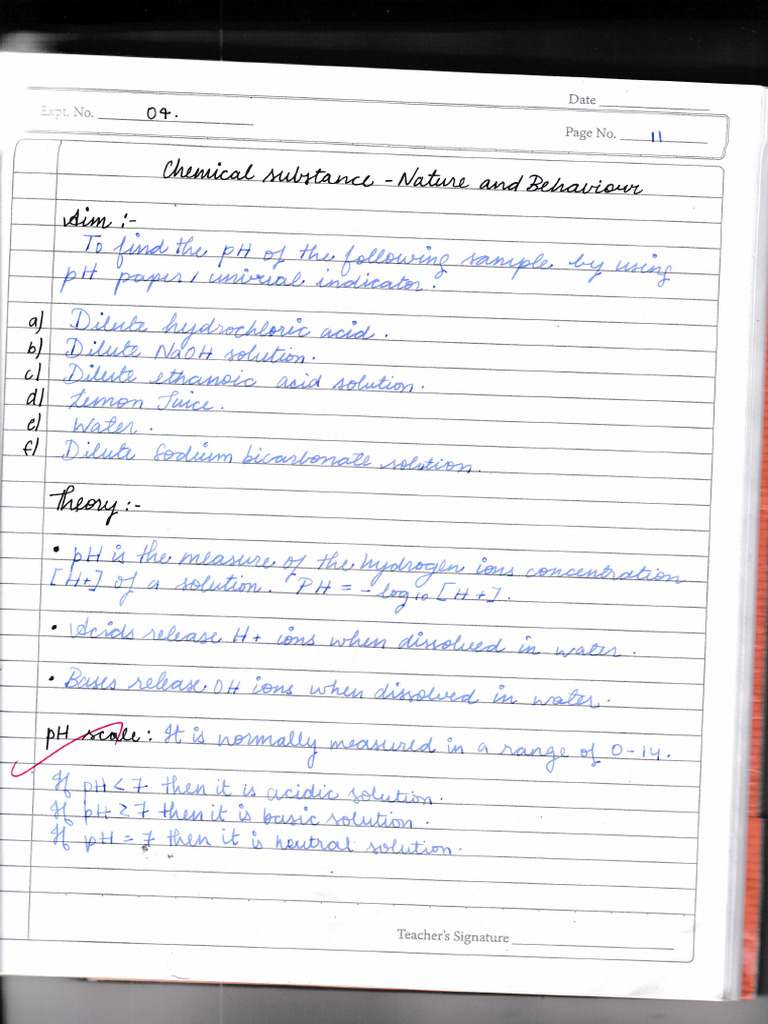 Date
Expt. No. 04.
Page No. 11
Chemical substance - Nature and Behaviour
Aim :-
To find the pH of the following sample by using
pH paper / univrsal indicator.
a) Dilute hydrochloric acid.
b) Dilute NaOH solution.
c) Dilute ethanoic acid solution.
d) Lemon Juice.
e) Water.
f) Dilute Sodium bicarbonate solution.
Theory :-
• pH is the measure of the hydrogen ions concentration
[H+] of a solution. PH = -log₁₀ [H+].
• Acids release H+ ions when dissolved in water.
• Bases release OH ions when dissolved in water.
pH scale : It is normally measured in a range of 0-14.
If pH < 7 then it is acidic solution.
If pH ≥ 7 then it is basic solution.
If pH = 7 then it is neutral solution.
Teacher's Signature